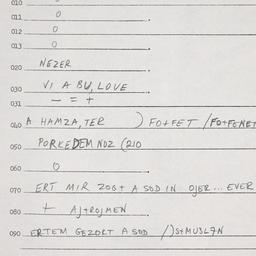 010
011 0
012 0
013 0
020 NEZER
030 VI A BU, LOVE
031 - = +
040 A HAMZA, TER ) FO+FET /FO+FENET
050 PORKEDEM NDZ (210
060 0
070 ERT MIR ZOG+ A SOD IN OJER... EVER
080 + AJ+ROJMEN
090 ERTEM GEZORT A SOD /)S+MUSL9N